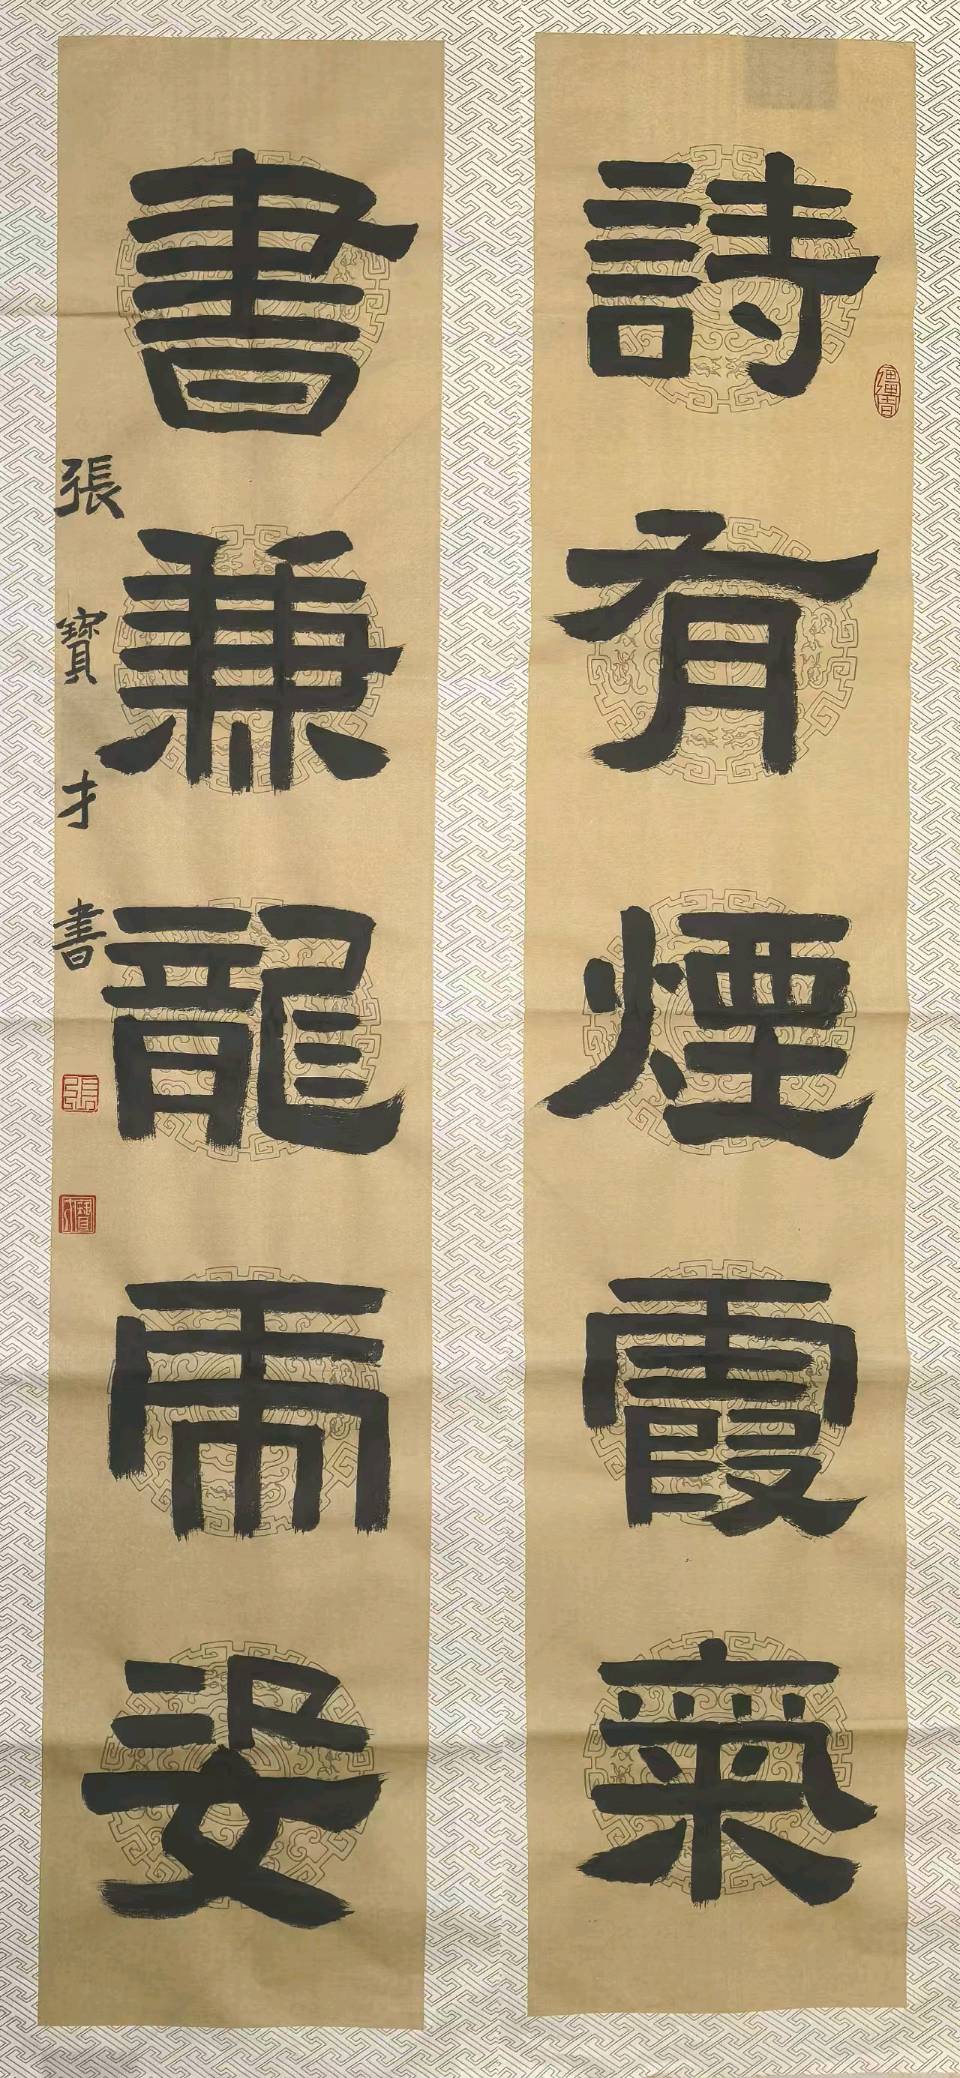 詩有煙霞氣
書兼龍虎姿
張寶才書
張